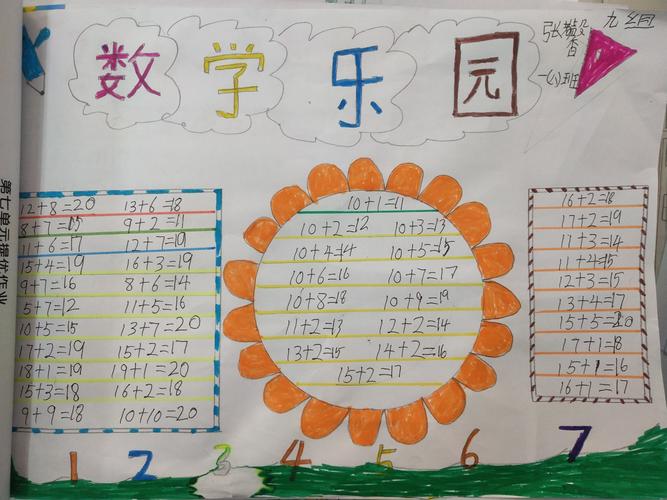 数学乐园
九组
班
第七单元提优作业
12+8=20 13+6=18
8+7=15 9+2=11
11+6=17 12+7=19
15+4=19 16+3=19
9+7=16 8+6=14
5+7=12 11+5=16
10+5=15 13+7=20
17+2=19 15+2=17
18+1=19 19+1=20
15+3=18 16+2=18
9+9=18 10+10=20
10+1=11
10+2=12 10+3=13
10+4=14 10+5=15
10+6=16 10+7=17
10+8=18 10+9=19
11+2=13 12+2=14
13+2=15 14+2=16
15+2=17
16+2=18
17+2=19
11+3=14
11+4=15
12+3=15
13+4=17
15+5=20
17+1=18
15+1=16
16+1=17
1 2 3 4 5 6 7